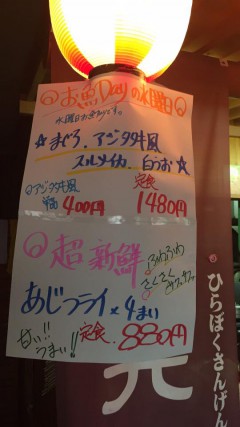 お魚Dayの水曜日
☆まぐろ、アジタタキ風
スルメイカ、白うお☆
アジタタキ風
単品400円
定食
1480円
超新鮮
ふわふわ
さくさく
あじフライ×4まい
甘い!!
うまい!!
定食、880円
ひらぼくさんげん